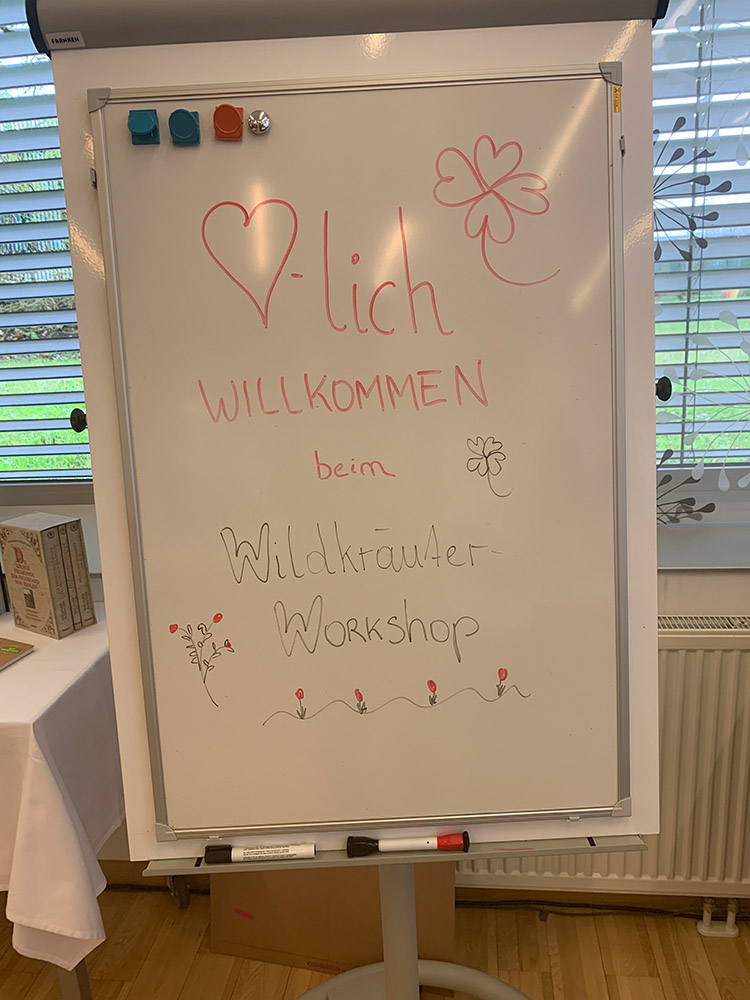 FRANKEN
♡-lich
WILLKOMMEN
beim
Wildkräuter-
Workshop